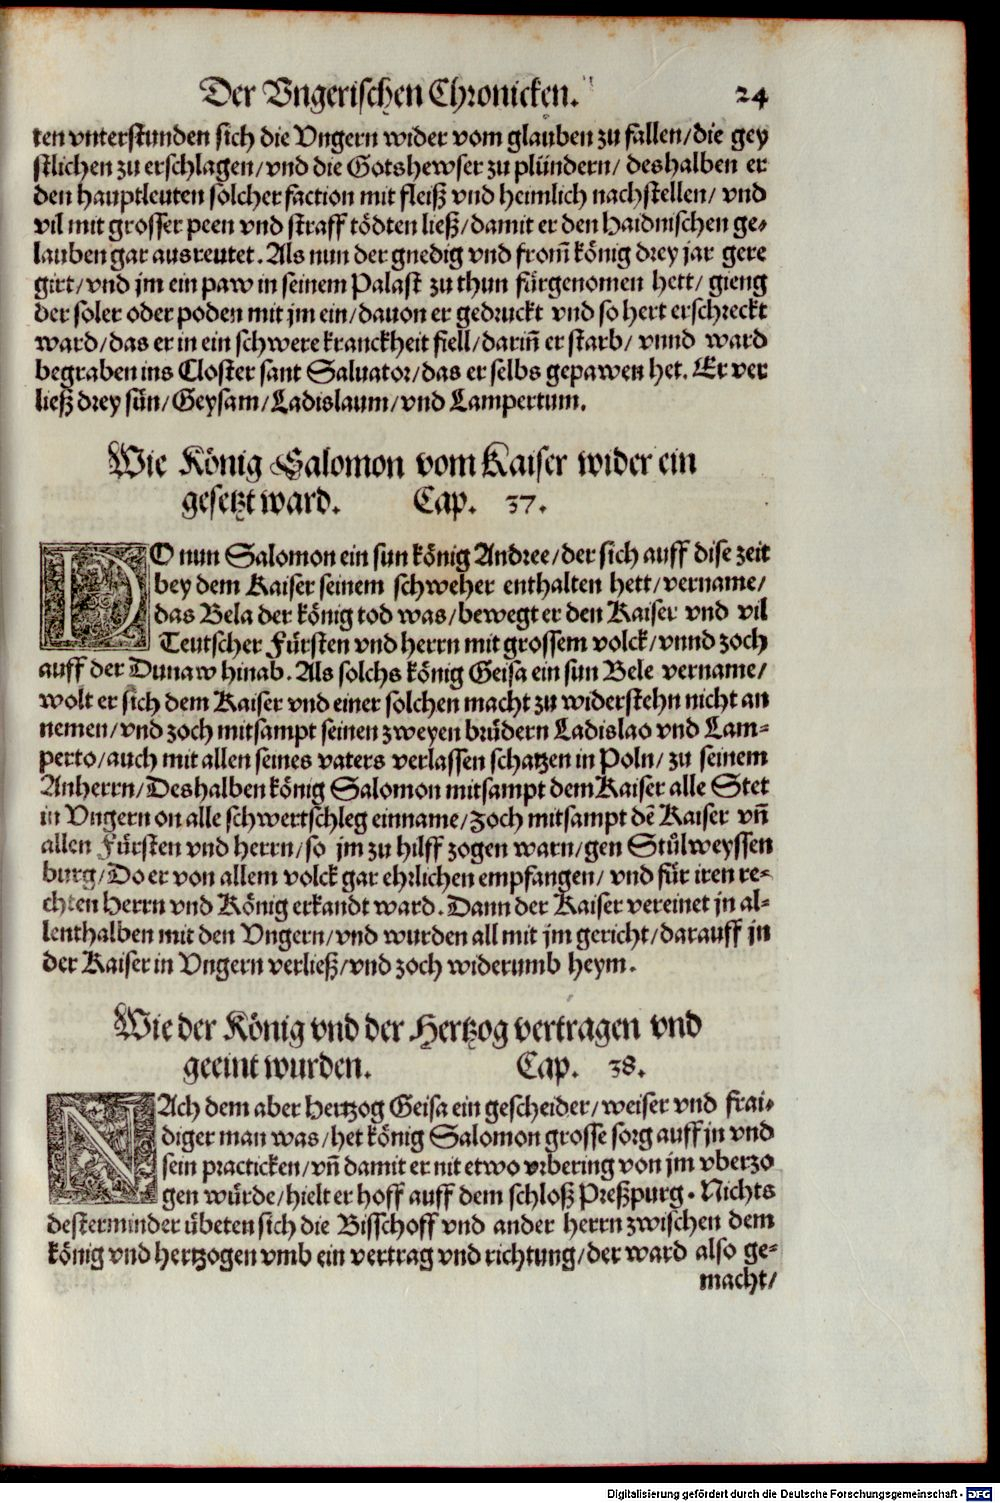 Der Vngerischen Chronicken. 24
ten vnterstunden sich die Vngern wider vom glauben zu fallen/die gey
stlichen zu erschlagen/vnd die Gotshewser zu plündern/ deshalben er
den hauptleuten solcher faction mit fleiß vnd heimlich nachstellen/ vnd
vil mit grosser peen vnd straff tödten ließ/damit er den Haidnischen ge-
lauben gar ausreutet. Als nun der gnedig vnd from̃ könig drey jar gere
girt/vnd jm ein paw in seinem Palast zu thun fürgenomen hett/ gieng
der soler oder poden mit jm ein/dauon er gedruckt vnd so hert erschreckt
ward/das er in ein schwere kranckheit fiell/dariñ er starb/ vnnd ward
begraben ins Closter sant Saluator/das er selbs gepawen het. Er ver
ließ drey sün/Geysam/Ladislaum/vnd Lampertum.
Wie König Salomon vom Kaiser wider ein
gesetzt ward. Cap. 37.
DO nun Salomon ein sun könig Andree/der sich auff dise zeit
bey dem Kaiser seinem schweher enthalten hett/vername/
das Bela der könig tod was/bewegt er den Kaiser vnd vil
Teutscher Fürsten vnd herrn mit grossem volck/vnnd zoch
auff der Dunaw hinab. Als solchs könig Geisa ein sun Bele vername/
wolt er sich dem Kaiser vnd einer solchen macht zu widerstehn nicht an
nemen/vnd zoch mitsampt seinen zweyen brüdern Ladislao vnd Lam-
perto/auch mit allen seines vaters verlassen schatzen in Poln/zu seinem
Anherrn/Deshalben könig Salomon mitsampt dem Kaiser alle Stet
in Vngern on alle schwertschleg einname/Zoch mitsampt dẽ Kaiser vñ
allen Fürsten vnd herrn/so jm zu hilff zogen warn/gen Stůlweyssen
burg/Do er von allem volck gar ehrlichen empfangen/ vnd für iren re-
chten Herrn vnd König erkandt ward. Dann der Kaiser vereinet jn al-
lenthalben mit den Vngern/vnd wurden all mit jm gericht/darauff jn
der Kaiser in Vngern verließ/vnd zoch widerumb heym.
Wie der König vnd der Hertzog vertragen vnd
geeint wurden. Cap. 38.
NAch dem aber Hertzog Geisa ein gescheider/weiser vnd frai-
diger man was/het könig Salomon grosse sorg auff jn vnd
sein practicken/vñ damit er nit etwo vrbering von jm vberzo
gen würde/hielt er hoff auff dem schloß Preßpurg. Nichts
desterminder übeten sich die Bisschoff vnd ander herrn zwischen dem
könig vnd hertzogen vmb ein vertrag vnd richtung/der ward also ge-
macht/
Digitalisierung gefördert durch die Deutsche Forschungsgemeinschaft - DFG